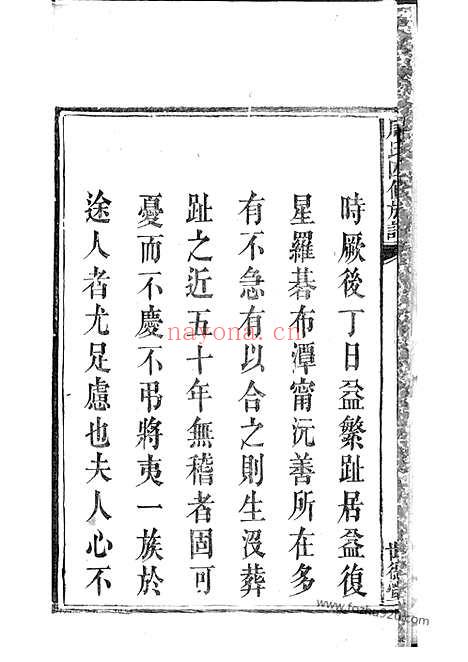 氏四修族譜
時厥後丁日益繁趾居益復
星羅碁布潭甯沅善所在多
有不急有以合之則生沒葬
趾之近五十年無稽者固可
憂而不慶不弔將夷一族於
途人者尤足慮也夫人心不
世德堂
nayona.cn
www.fozhu920.com